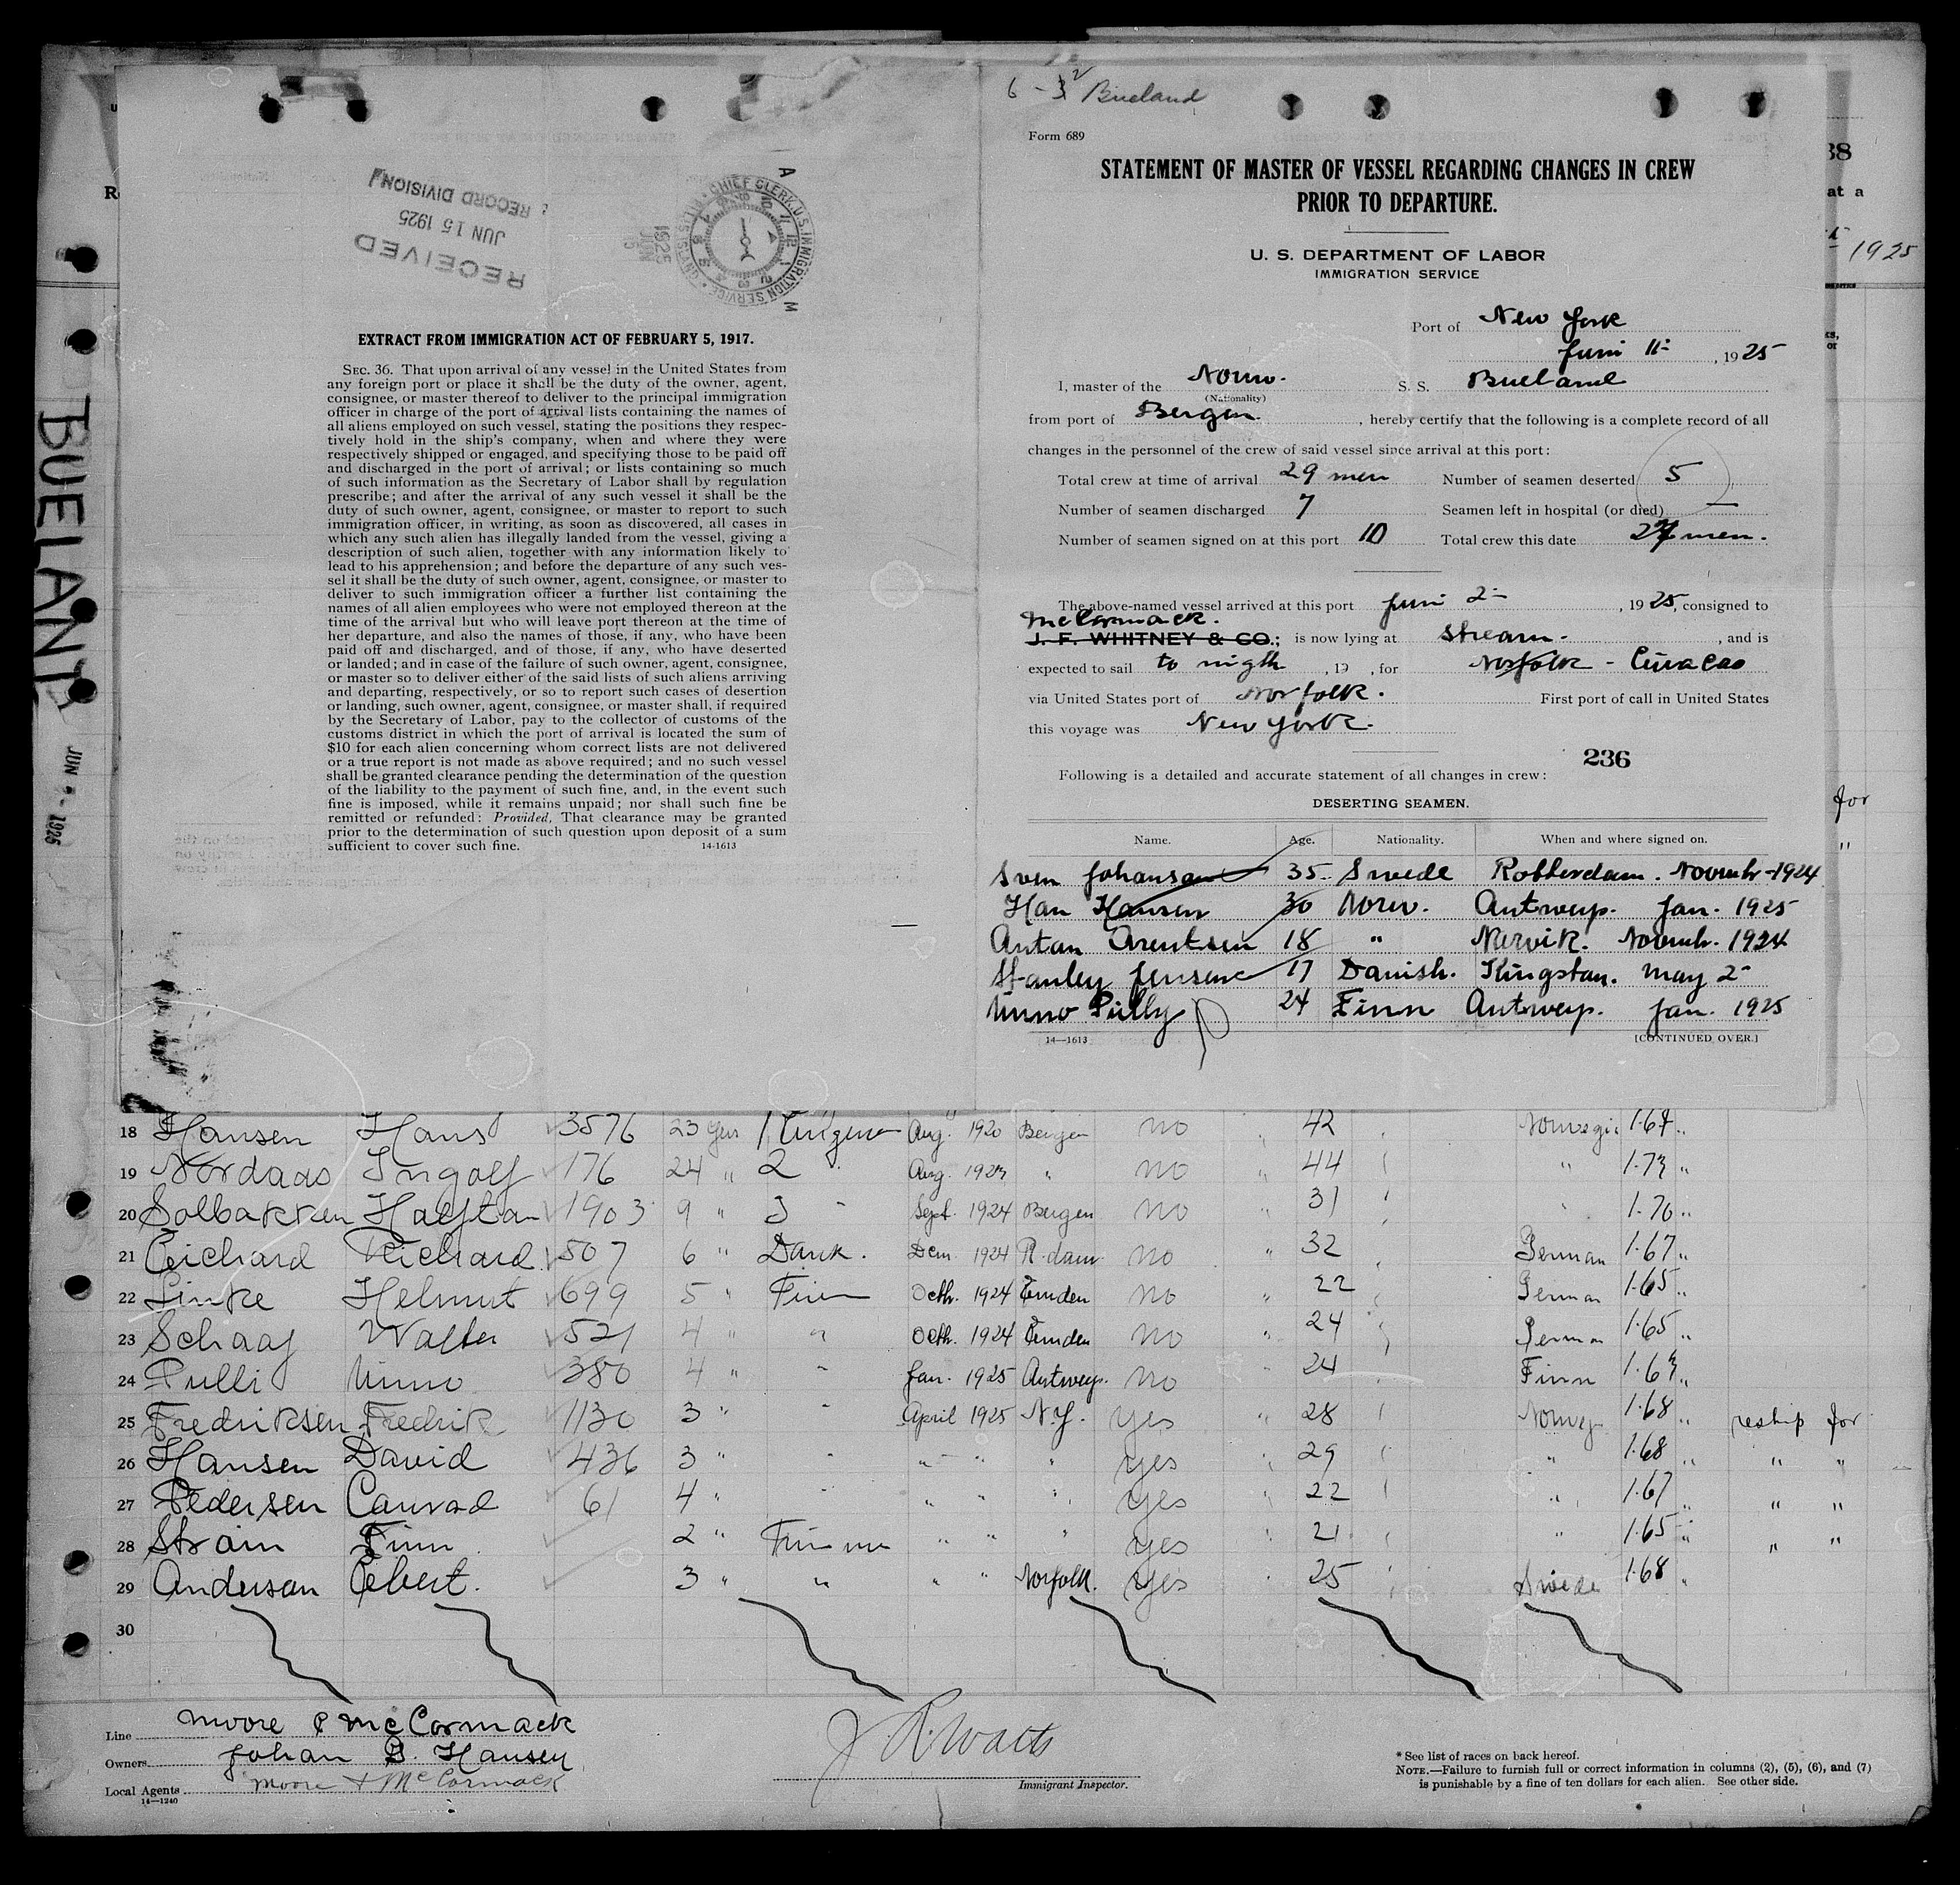 BUELAND
JUN 2- 1925
RECEIVED
JUN 15 1925
RECORD DIVISION
CHIEF CLERK, U.S. IMMIGRATION SERVICE
1925
JUN
A
M
EXTRACT FROM IMMIGRATION ACT OF FEBRUARY 5, 1917.
SEC. 36. That upon arrival of any vessel in the United States from
any foreign port or place it shall be the duty of the owner, agent,
consignee, or master thereof to deliver to the principal immigration
officer in charge of the port of arrival lists containing the names of
all aliens employed on such vessel, stating the positions they respec-
tively hold in the ship's company, when and where they were
respectively shipped or engaged, and specifying those to be paid off
and discharged in the port of arrival; or lists containing so much
of such information as the Secretary of Labor shall by regulation
prescribe; and after the arrival of any such vessel it shall be the
duty of such owner, agent, consignee, or master to report to such
immigration officer, in writing, as soon as discovered, all cases in
which any such alien has illegally landed from the vessel, giving a
description of such alien, together with any information likely to
lead to his apprehension; and before the departure of any such ves-
sel it shall be the duty of such owner, agent, consignee, or master to
deliver to such immigration officer a further list containing the
names of all alien employees who were not employed thereon at the
time of the arrival but who will leave port thereon at the time of
her departure, and also the names of those, if any, who have been
paid off and discharged, and of those, if any, who have deserted
or landed; and in case of the failure of such owner, agent, consignee,
or master so to deliver either of the said lists of such aliens arriving
and departing, respectively, or so to report such cases of desertion
or landing, such owner, agent, consignee, or master shall, if required
by the Secretary of Labor, pay to the collector of customs of the
customs district in which the port of arrival is located the sum of
$10 for each alien concerning whom correct lists are not delivered
or a true report is not made as above required; and no such vessel
shall be granted clearance pending the determination of the question
of the liability to the payment of such fine, and, in the event such
fine is imposed, while it remains unpaid; nor shall such fine be
remitted or refunded: Provided, That clearance may be granted
prior to the determination of such question upon deposit of a sum
sufficient to cover such fine. 14-1613
6 - 2 Bueland
Form 689
STATEMENT OF MASTER OF VESSEL REGARDING CHANGES IN CREW
PRIOR TO DEPARTURE.
U. S. DEPARTMENT OF LABOR
IMMIGRATION SERVICE
Port of New York
Juni 11-, 1925
I, master of the Norw. S. S. Bueland
(Nationality)
from port of Bergen, hereby certify that the following is a complete record of all
changes in the personnel of the crew of said vessel since arrival at this port:
Total crew at time of arrival 29 men Number of seamen deserted 5
Number of seamen discharged 7 Seamen left in hospital (or died) —
Number of seamen signed on at this port 10 Total crew this date 27 men.
The above-named vessel arrived at this port Juni 2-, 1925, consigned to
McCormack.
J. F. WHITNEY & CO.; is now lying at Stream-, and is
expected to sail to nigth, 19 , for Norfolk - Curacao
via United States port of Norfolk. First port of call in United States
this voyage was New York.
236
Following is a detailed and accurate statement of all changes in crew:
DESERTING SEAMEN.
Name. Age. Nationality. When and where signed on.
Sven Johansen 35 Swede Rotterdam. Novembr-1924
Han Hansen 30 Norw. Antwerp. Jan. 1925
Antan Arentsen 18 " Narvik. Novemb. 1924
Stanley Jensen 17 Danish. Kingstan. may 2-
Unno Pully 24 Finn Antwerp. Jan. 1925
14—1613 [CONTINUED OVER.]
38
at a
1925
for
"
18 Hansen Hans 3576 23 yrs Aug. 1920 Bergen no 42 1.67 "
19 Nordaas Ingolf 176 24 " 2 " Aug. 1923 " no " 44 " 1.73 "
20 Solbakken Halftan 1903 9 " 3 " Sept. 1924 Bergen no " 31 " 1.70 "
21 Richard 507 6 " Dank. Dcm 1924 R-dam no " 32 German 1.67 "
22 Linke Helmut 699 5 " Firm Octb. 1924 Emden no " 22 German 1.65 "
23 Schaaf Walter 521 4 " " Octb. 1924 Emden no " 24 German 1.65 "
24 Pulli Unno 380 4 " " Jan. 1925 Antwerp. no " 24 Finn 1.63 "
25 Fredriksen Fredrik 1130 3 " " April 1925 N.Y. yes " 28 Norweg 1.68 " reship for
26 Hansen David 436 3 " " " " " yes " 29 " 1.68 " " "
27 Pedersen Conrad 61 4 " " " " " yes " 22 " 1.67 " " "
28 Strain Finn 2 " " " " yes " 21 " 1.65 " " "
29 Anderson Ebert. 3 " " " " Norfolk. yes " 25 Swede 1.68 "
30
Line Moore & McCormack
Owners Johan G. Hansen
Local Agents Moore & McCormack
14—1240
J R Watts
Immigrant Inspector.
* See list of races on back hereof.
NOTE.—Failure to furnish full or correct information in columns (2), (5), (6), and (7)
is punishable by a fine of ten dollars for each alien. See other side.